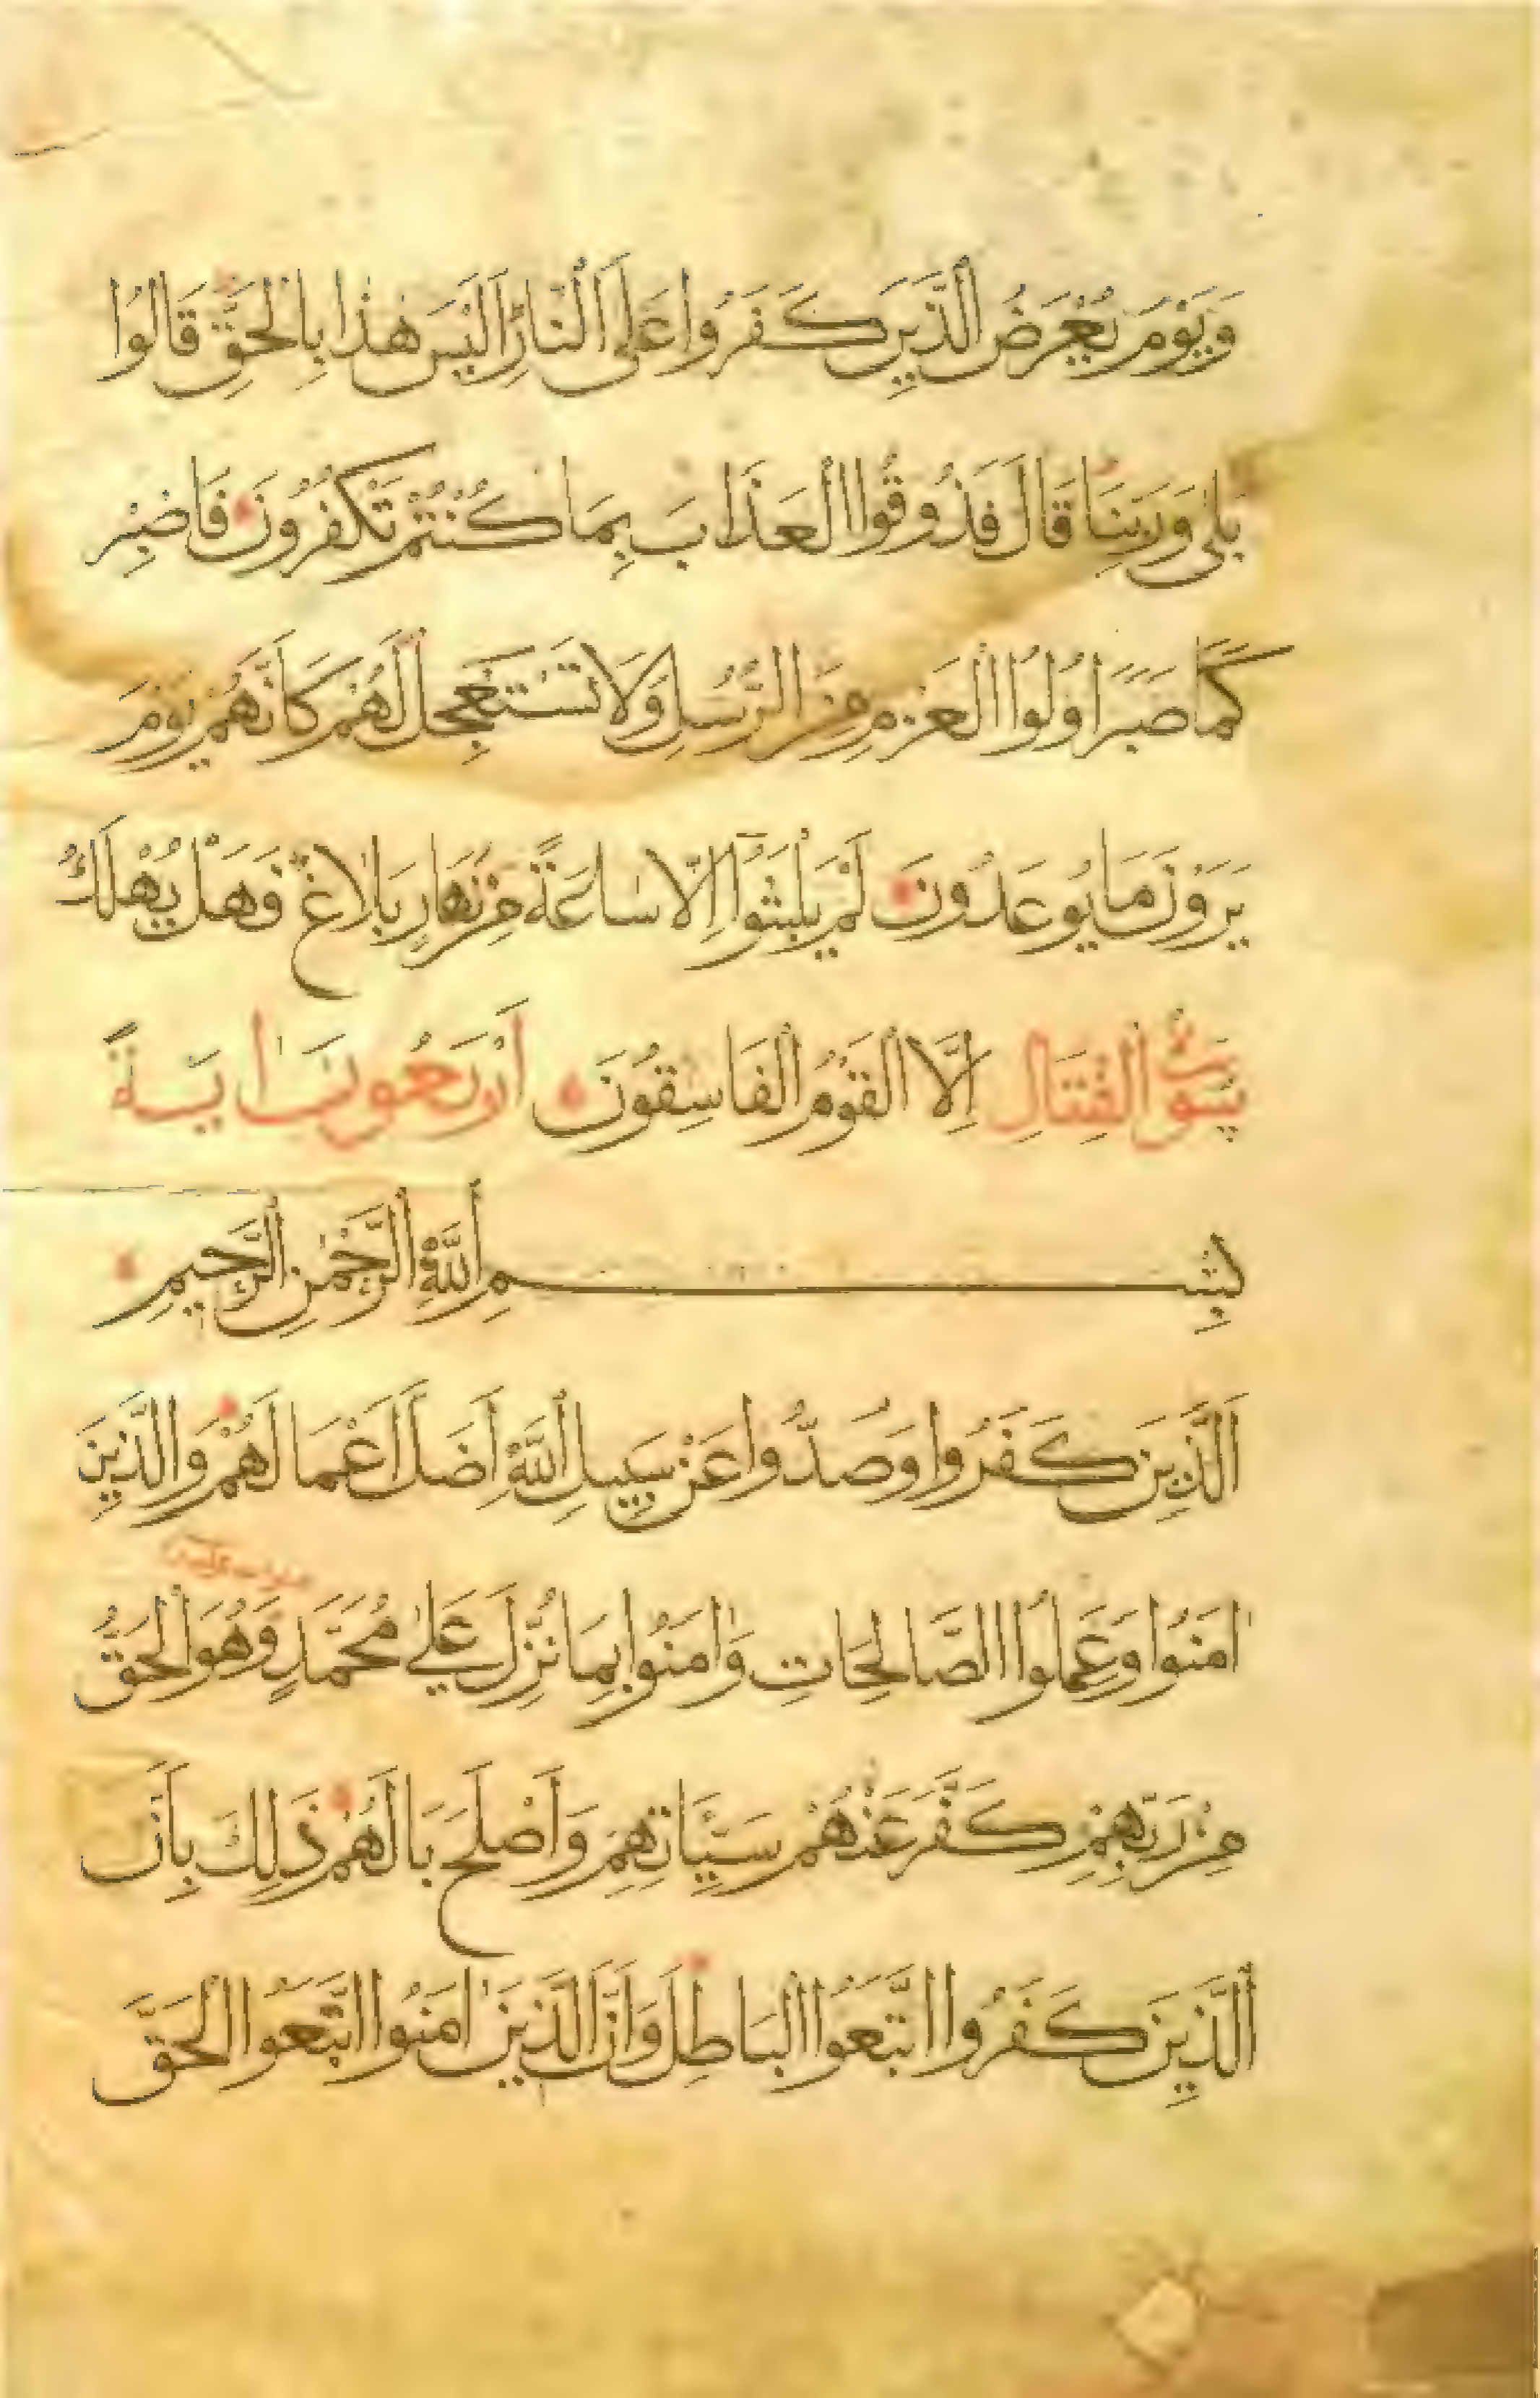 وَيَوْمَ يُعْرَضُ الَّذِينَ كَفَرُوا عَلَى النَّارِ اَلَيْسَ هٰذَا بِالْحَقِّ قَالُوا
بَلٰى وَرَبِّنَا قَالَ فَذُوقُوا الْعَذَابَ بِمَا كُنْتُمْ تَكْفُرُونَ فَاصْبِرْ
كَمَا صَبَرَ اُولُوا الْعَزْمِ مِنَ الرُّسُلِ وَلَا تَسْتَعْجِلْ لَهُمْ كَاَنَّهُمْ يَوْمَ
يَرَوْنَ مَا يُوعَدُونَ لَمْ يَلْبَثُوٓا اِلَّا سَاعَةً مِنْ نَهَارٍ بَلَاغٌ فَهَلْ يُهْلَكُ
سُورَةُ الْقِتَالِ اِلَّا الْقَوْمُ الْفَاسِقُونَ اَرْبَعُونَ اٰيَةً
بِسْمِ اللّٰهِ الرَّحْمٰنِ الرَّحِيمِ
اَلَّذِينَ كَفَرُوا وَصَدُّوا عَنْ سَبِيلِ اللّٰهِ اَضَلَّ اَعْمَالَهُمْ وَالَّذِينَ
اٰمَنُوا وَعَمِلُوا الصَّالِحَاتِ وَاٰمَنُوا بِمَا نُزِّلَ عَلٰى مُحَمَّدٍ وَهُوَ الْحَقُّ
مِنْ رَبِّهِمْ كَفَّرَ عَنْهُمْ سَيِّئَاتِهِمْ وَاَصْلَحَ بَالَهُمْ ذَلِكَ بِاَنَّ
الَّذِينَ كَفَرُوا اتَّبَعُوا الْبَاطِلَ وَاَنَّ الَّذِينَ اٰمَنُوا اتَّبَعُوا الْحَقَّ